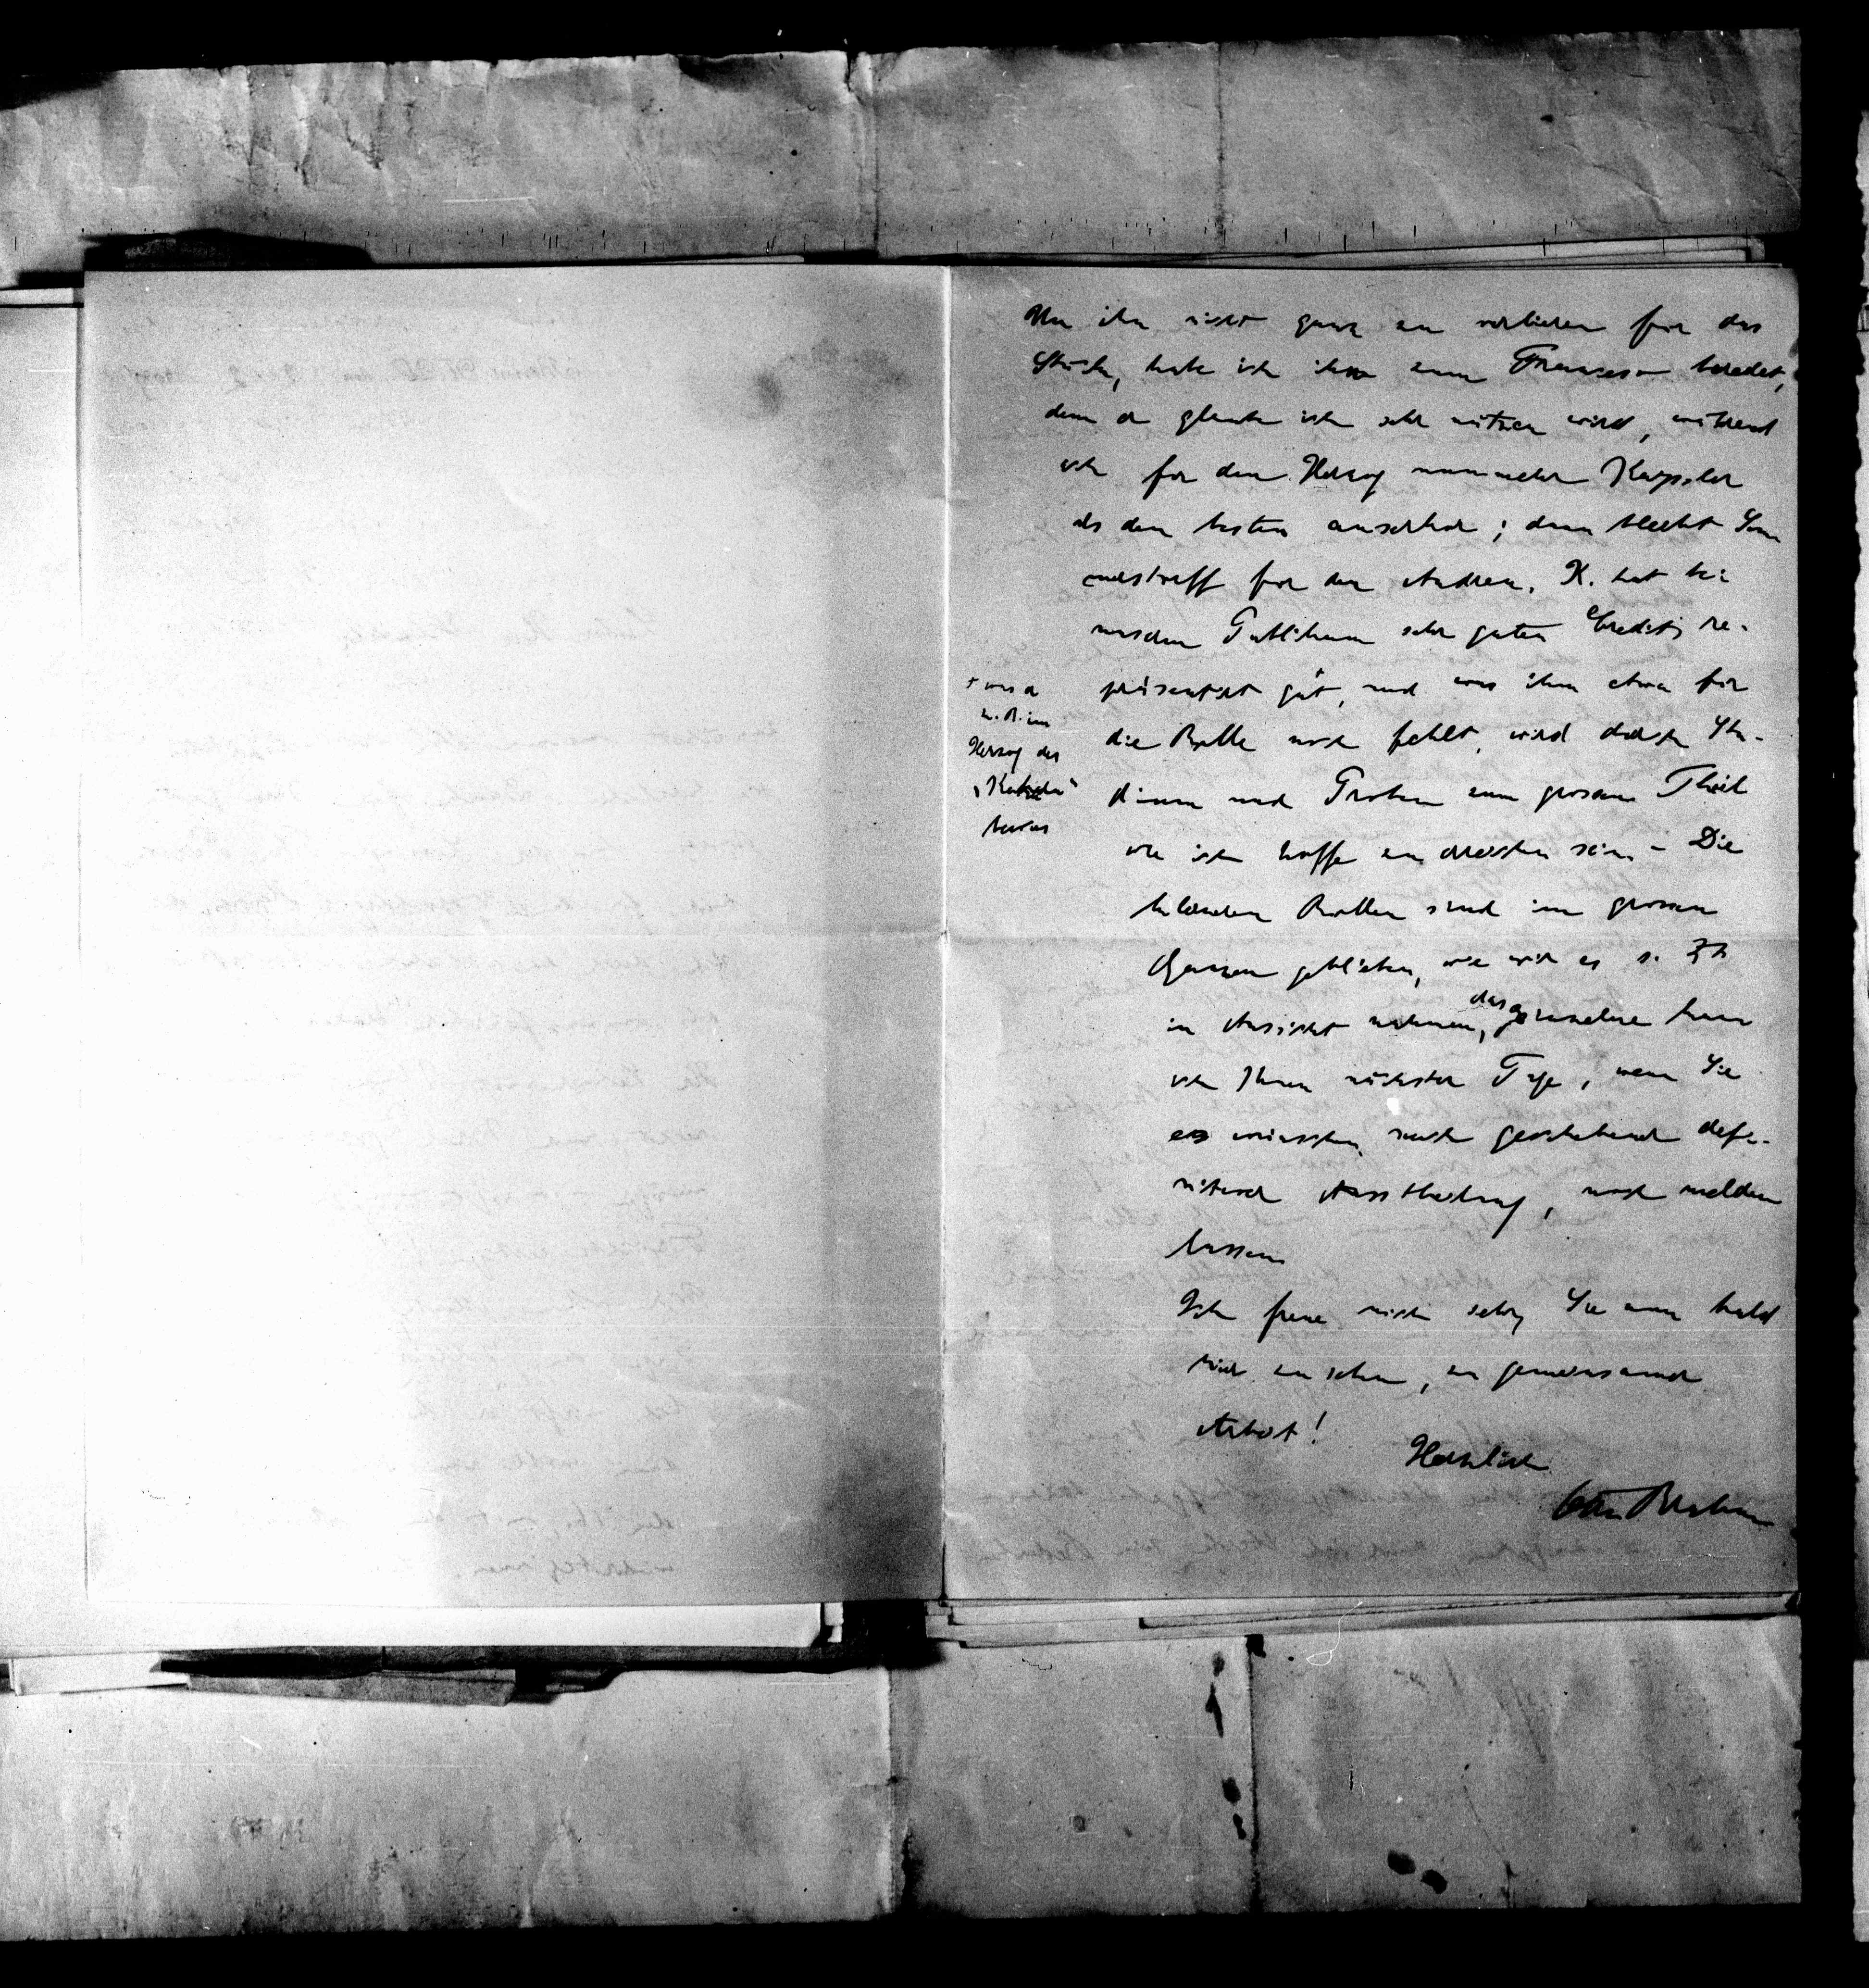 Um ihn nicht ganz zu verlieren für das
Stück, habe ich ihn zum Francesco beredet,
den er glaube ich sehr nützen wird, während
ich für den Herzog nunmehr Kayssler
als den besten ansehe; dann bleibt Som
merstorff für den Andrea. K. hat bei
unserm Publikum sehr guten Credit, re-
präsentirt gut, und was ihm etwa für
die Rolle noch fehlt, wird durch Stu-
dium und Proben zum grossen Theil
wie ich hoffe zu erreichen sein – Die
anderen Rollen sind im grossen
Ganzen geblieben, wie wir es s. Zt
in Aussicht nahmen, das Einzelne kann
ich Ihnen nächster Tage, wenn Sie
es wünschen, nach geschehener defi-
nitiver Austheilung, noch melden
lassen
Ich freue mich sehr, Sie nun bald
hier zu sehen, zu gemeinsamer
Arbeit!
Herzlich
Otto Brahm
+ was er
z. B. im
Herzog des
„Kakadu"
bewies